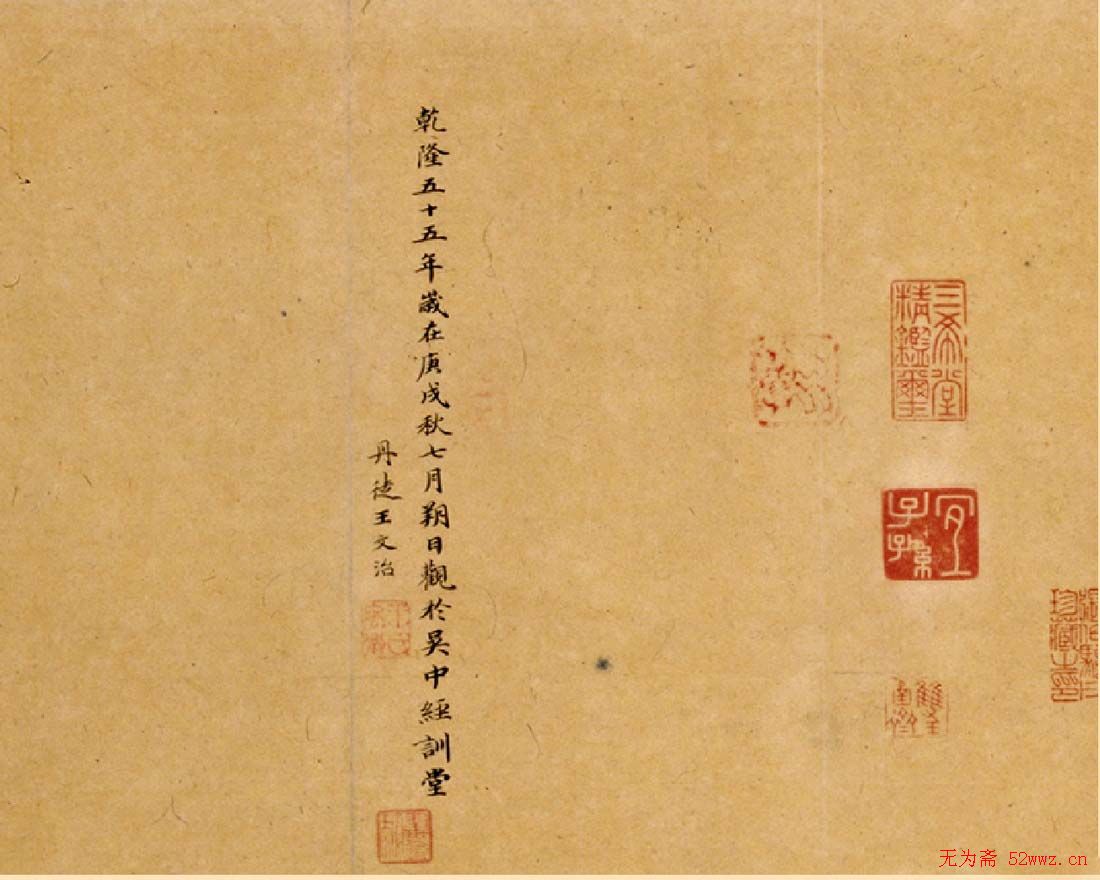 三希堂精鑑璽
宜子孫
乾隆五十五年歲在庚戌秋七月朔日觀於吳中經訓堂
丹徒王文治
无为斋 52wwz.cn